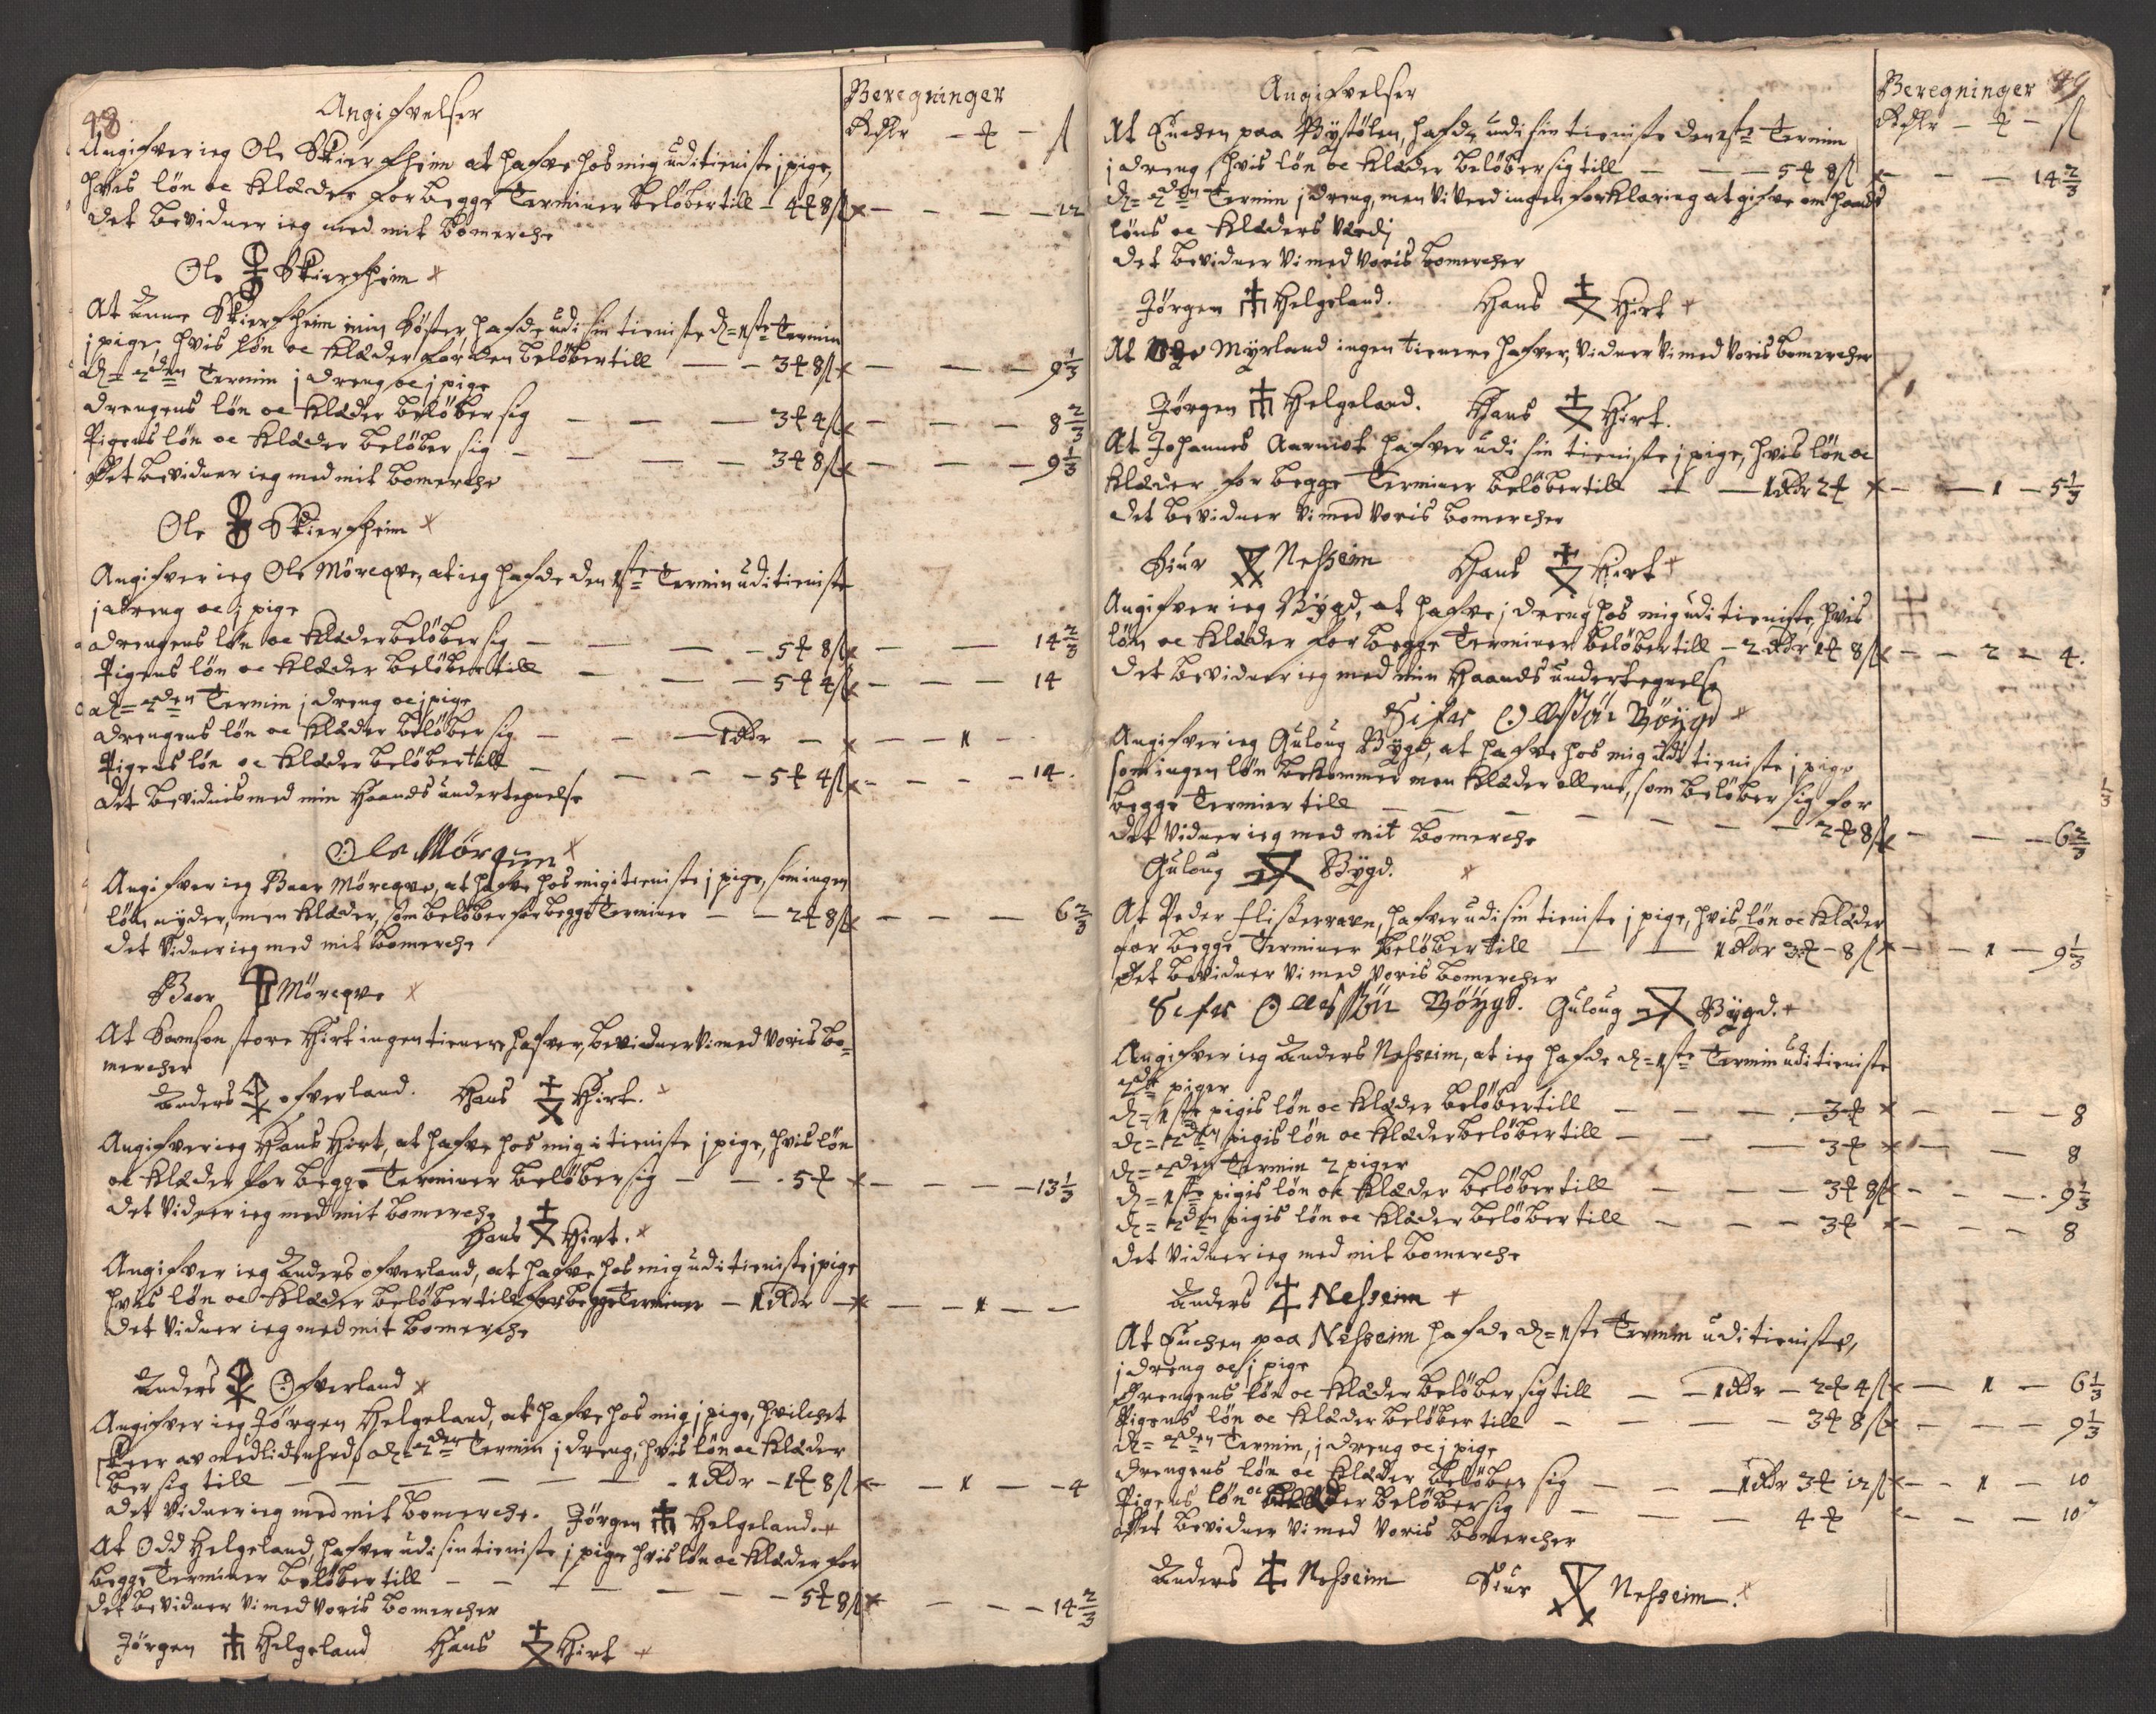 48
Angifvelser
Beregninger
Rdlr — ℔ — ß
Angifver ieg Ole Skierfheim at hafve hos mig udi tieniste j pige,
hvis løn oc Klæder for begge Terminer beløber till — 4 ℔ 8 ß × — — — 12
Det bevidner ieg med mit bomerche
Ole Skierfheim ×
At Anne Skierfheim min Søster, hafde udi sin tieniste d= 1ste Termin
j pige, hvis løn oc Klæder for den beløber till — — 3 ℔ 8 ß × — — — 9 1/3
d= 2den Termin j dreng oc j pige
drengens løn oc Klæder beløber sig — — — 3 ℔ 4 ß × — — — 8 2/3
Pigens løn oc Klæder beløber sig — — — 3 ℔ 8 ß × — — — 9 1/3
Det bevidner ieg med mit bomerche
Ole Skierfheim ×
Angifver ieg Ole Mörcqve, at ieg hafde den 1ste Termin udi tieniste
j dreng oc j pige
drengens løn oc Klæder beløber sig — — — 5 ℔ 8 ß × — — 14 2/3
Pigens løn oc Klæder beløber till — — — 5 ℔ 4 ß × — — — 14
d= 2den Termin j dreng oc j pige
drengens løn oc Klæder beløber sig — — — 1 Rdr — × — — 1 —
Pigens løn oc Klæder beløber till — — — 5 ℔ 4 ß × — — — 14.
Det bevidnis med min Haands undertegnelse
Ole Mörcqve ×
Angifver ieg Baar Mörcqve, at hafve hos mig i tieniste j pige, som ingen
løn nyder, men Klæder, som beløber for begge Terminer — — 2 ℔ 8 ß × — — — 6 2/3
Det Vidner ieg med mit bomerche
Baar Mörcqve ×
At Samson store Hirt ingen tienere hafver, bevidner Vi med Voris bo=
mercher
Anders ofverland. Hans Hirt. ×
Angifver ieg Hans Hirt, at hafve hos mig i tieniste j pige, hvis løn
oc Klæder for begge Terminer beløber sig — — 5 ℔ × — — — 13 1/3
Det Vidner ieg med mit bomerche
Hans Hirt. ×
Angifver ieg Anders ofverland, at hafve hos mig udi tieniste j pige
hvis løn oc Klæder beløber till for begge Terminer — 1 Rdr — × — — 1 — —
Det Vidner ieg med mit bomerche
Anders Ofverland ×
Angifver ieg Jørgen Helgeland, at hafve hos mig j pige, hvilchet
skeer av medlidenhed, d= 2den Termin j dreng, hvis løn oc Klæder
ber sig till — — — — 1 Rdr — 1 ℔ 8 ß × — — 1 — — 4
Det Vidner ieg med mit bomerche. Jørgen Helgeland. ×
At Odd Helgeland, hafver udi sin tieniste j pige hvis løn oc Klæder for
begge Terminer beløber till — — — — — 5 ℔ 8 ß × — — — 14 2/3
Det bevidner Vi med Voris bomercher
Jørgen Helgeland Hans Hirt ×
49
Angifvelser
Beregninger
Rdlr — ℔ — ß
At Enchen paa Bystølen, hafde udi sin tieniste den 1ste Termin
j dreng, hvis løn oc Klæder beløber sig till — — — 5 ℔ 8 ß × — — — 14 2/3
d= 2den Termin j dreng, men Vi Veed ingen forklaring at gifve om hands
løns oc Klæders Værdj
Det bevidner Vi med Voris bomercher
Jørgen Helgeland. Hans Hirt ×
At Myrland ingen tienere hafver, Vidner Vi med Voris bomercher
Jørgen Helgeland. Hans Hirt.
At Johannes Aarmot hafver udi sin tieniste j pige, hvis løn oc
Klæder for begge Terminer beløber till — — 1 Rdr 2 ℔ × — — 1 — 5 1/3
Det bevidner Vi med Voris bomercher
Siur Nesheim Hans Hirt ×
Angifver ieg Bygd, at hafve j dreng hos mig udi tieniste, hvis
løn oc Klæder for begge Terminer beløber till — 2 Rdr 1 ℔ 8 ß × — — 2 — 4.
Det bevidner ieg med min Haands undertegnelse
Sifer Ollessøn Böygd ×
Angifver ieg Guloug Bygd, at hafve hos mig udi tieniste j pige
som ingen løn bekommer men Klæder allene, som beløber sig for
begge Termier till — — — — — — 2 ℔ 8 ß × — — — 6 2/3
Det Vidner ieg med mit bomerche
Guloug Bygd. ×
At Peder flisserram, hafver udi sin tieniste j pige, hvis løn oc Klæder
for begge Terminer beløber till — — 1 Rdr 3 ℔ — 8 ß × — — 1 — 9 1/3
Det bevidner Vi med Voris bomercher
Sifer Ollessøn Böygd. Guloug Bygd. ×
Angifver ieg Anders Nesheim, at ieg hafde d= 1ste Termin udi tieniste
2de piger
d= 1ste pigis løn oc Klæder beløber till — — — 3 ℔ × — — — 8
d= 2den pigis løn oc Klæder beløber till — — — 3 ℔ × — — 8
d= 2den Termin 2 piger
d= 1ste pigis løn oc Klæder beløber till — — — 3 ℔ 8 ß × — — — 9 1/3
d= 2den pigis løn oc Klæder beløber till — — — 3 ℔ × — — — 8
Det Vidner ieg med mit bomerche
Anders Nesheim ×
At Enchen paa Nesheim hafde d= 1ste Termin udi tieniste,
j dreng oc j pige
Drengens løn oc Klæder beløber sig till — — 1 Rdr — 2 ℔ 4 ß × — 1 — 6 1/3
Pigens løn oc Klæder beløber till — — — — 3 ℔ 8 ß × — — — 9 1/3
d= 2den Termin, j dreng oc j pige
Drengens løn oc Klæder beløber sig — — — 1 Rdr 3 ℔ 12 ß × — — 1 — 10
Pigens løn oc Klæder beløber sig — — — 4 ℔ × — — — 10
Det bevidner Vi med Voris bomercher
Anders Nesheim Siur Nesheim. ×